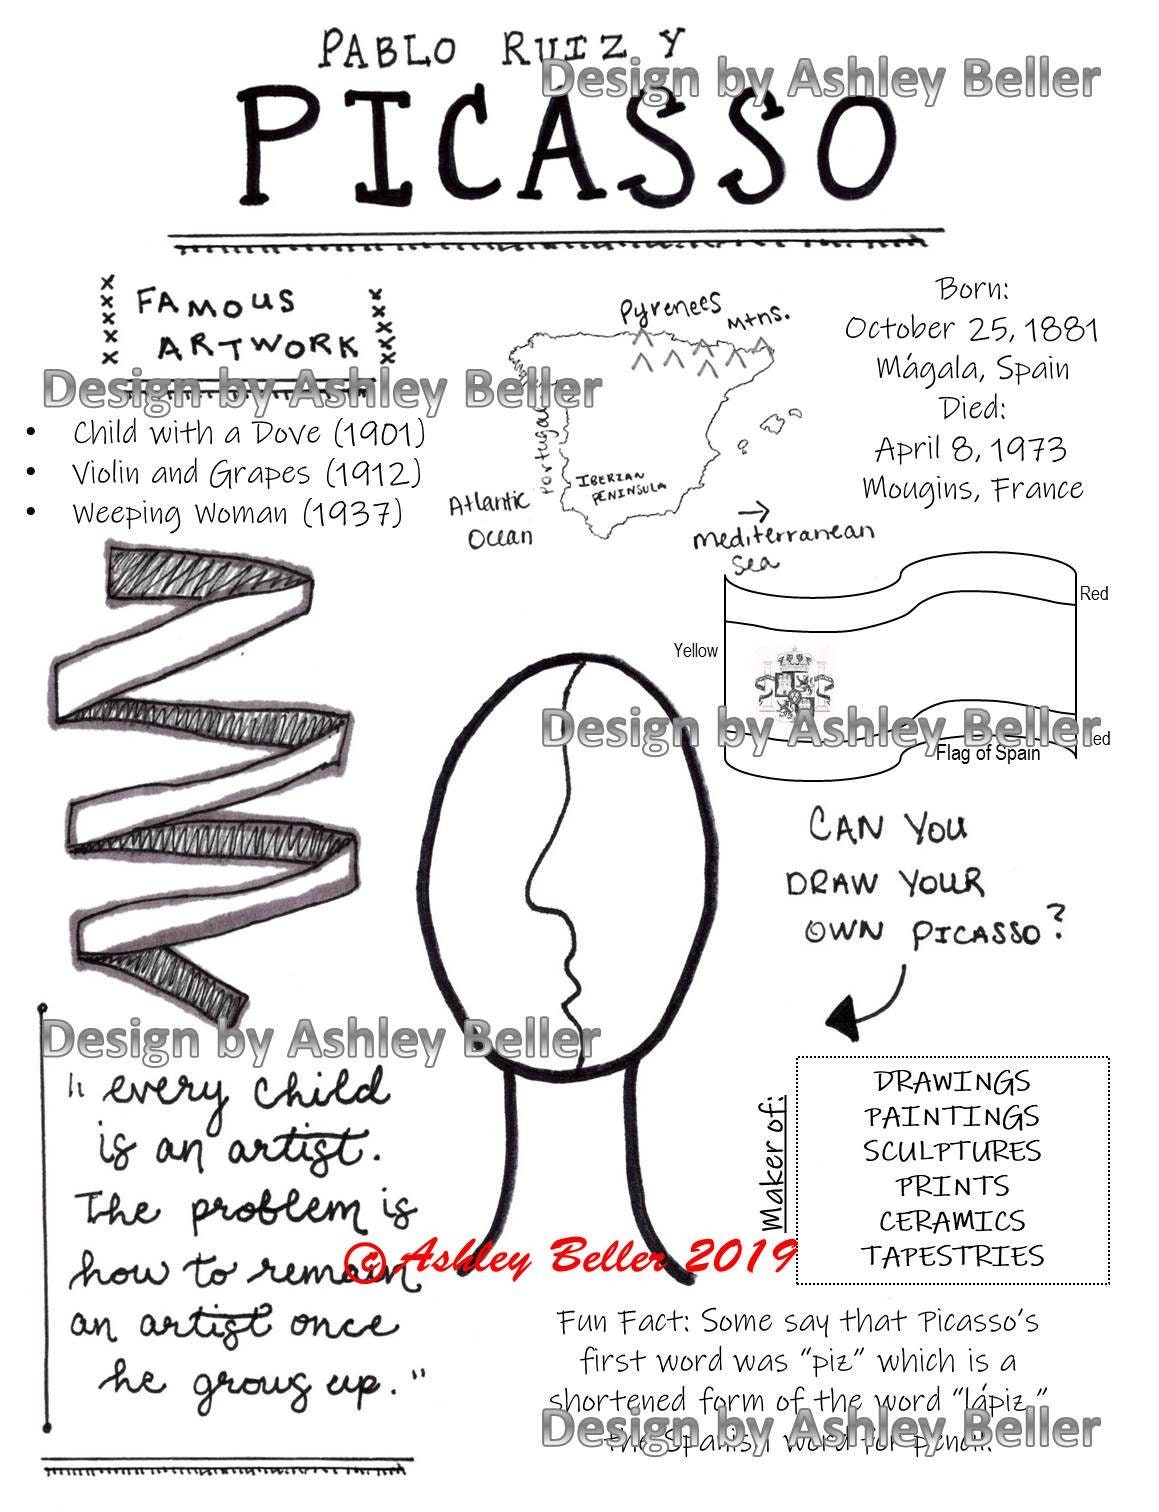 PABLO RUIZ Y
PICASSO
Design by Ashley Beller
FAMOUS
ARTWORK
Design by Ashley Beller
• Child with a Dove (1901)
• Violin and Grapes (1912)
• Weeping Woman (1937)
Pyrenees
Mtns.
Portugal
IBERIAN
PENINSULA
Atlantic
Ocean
Mediterranean
Sea
Born:
October 25, 1881
Mágala, Spain
Died:
April 8, 1973
Mougins, France
Red
Yellow
Design by Ashley Beller
Red
Flag of Spain
CAN YOU
DRAW YOUR
OWN PICASSO?
Design by Ashley Beller
"every child
is an artist.
The problem is
how to remain
an artist once
he grows up."
Maker of:
DRAWINGS
PAINTINGS
SCULPTURES
PRINTS
CERAMICS
TAPESTRIES
© Ashley Beller 2019
Fun Fact: Some say that Picasso's
first word was "piz" which is a
shortened form of the word "lápiz,"
the Spanish word for pencil.
Design by Ashley Beller